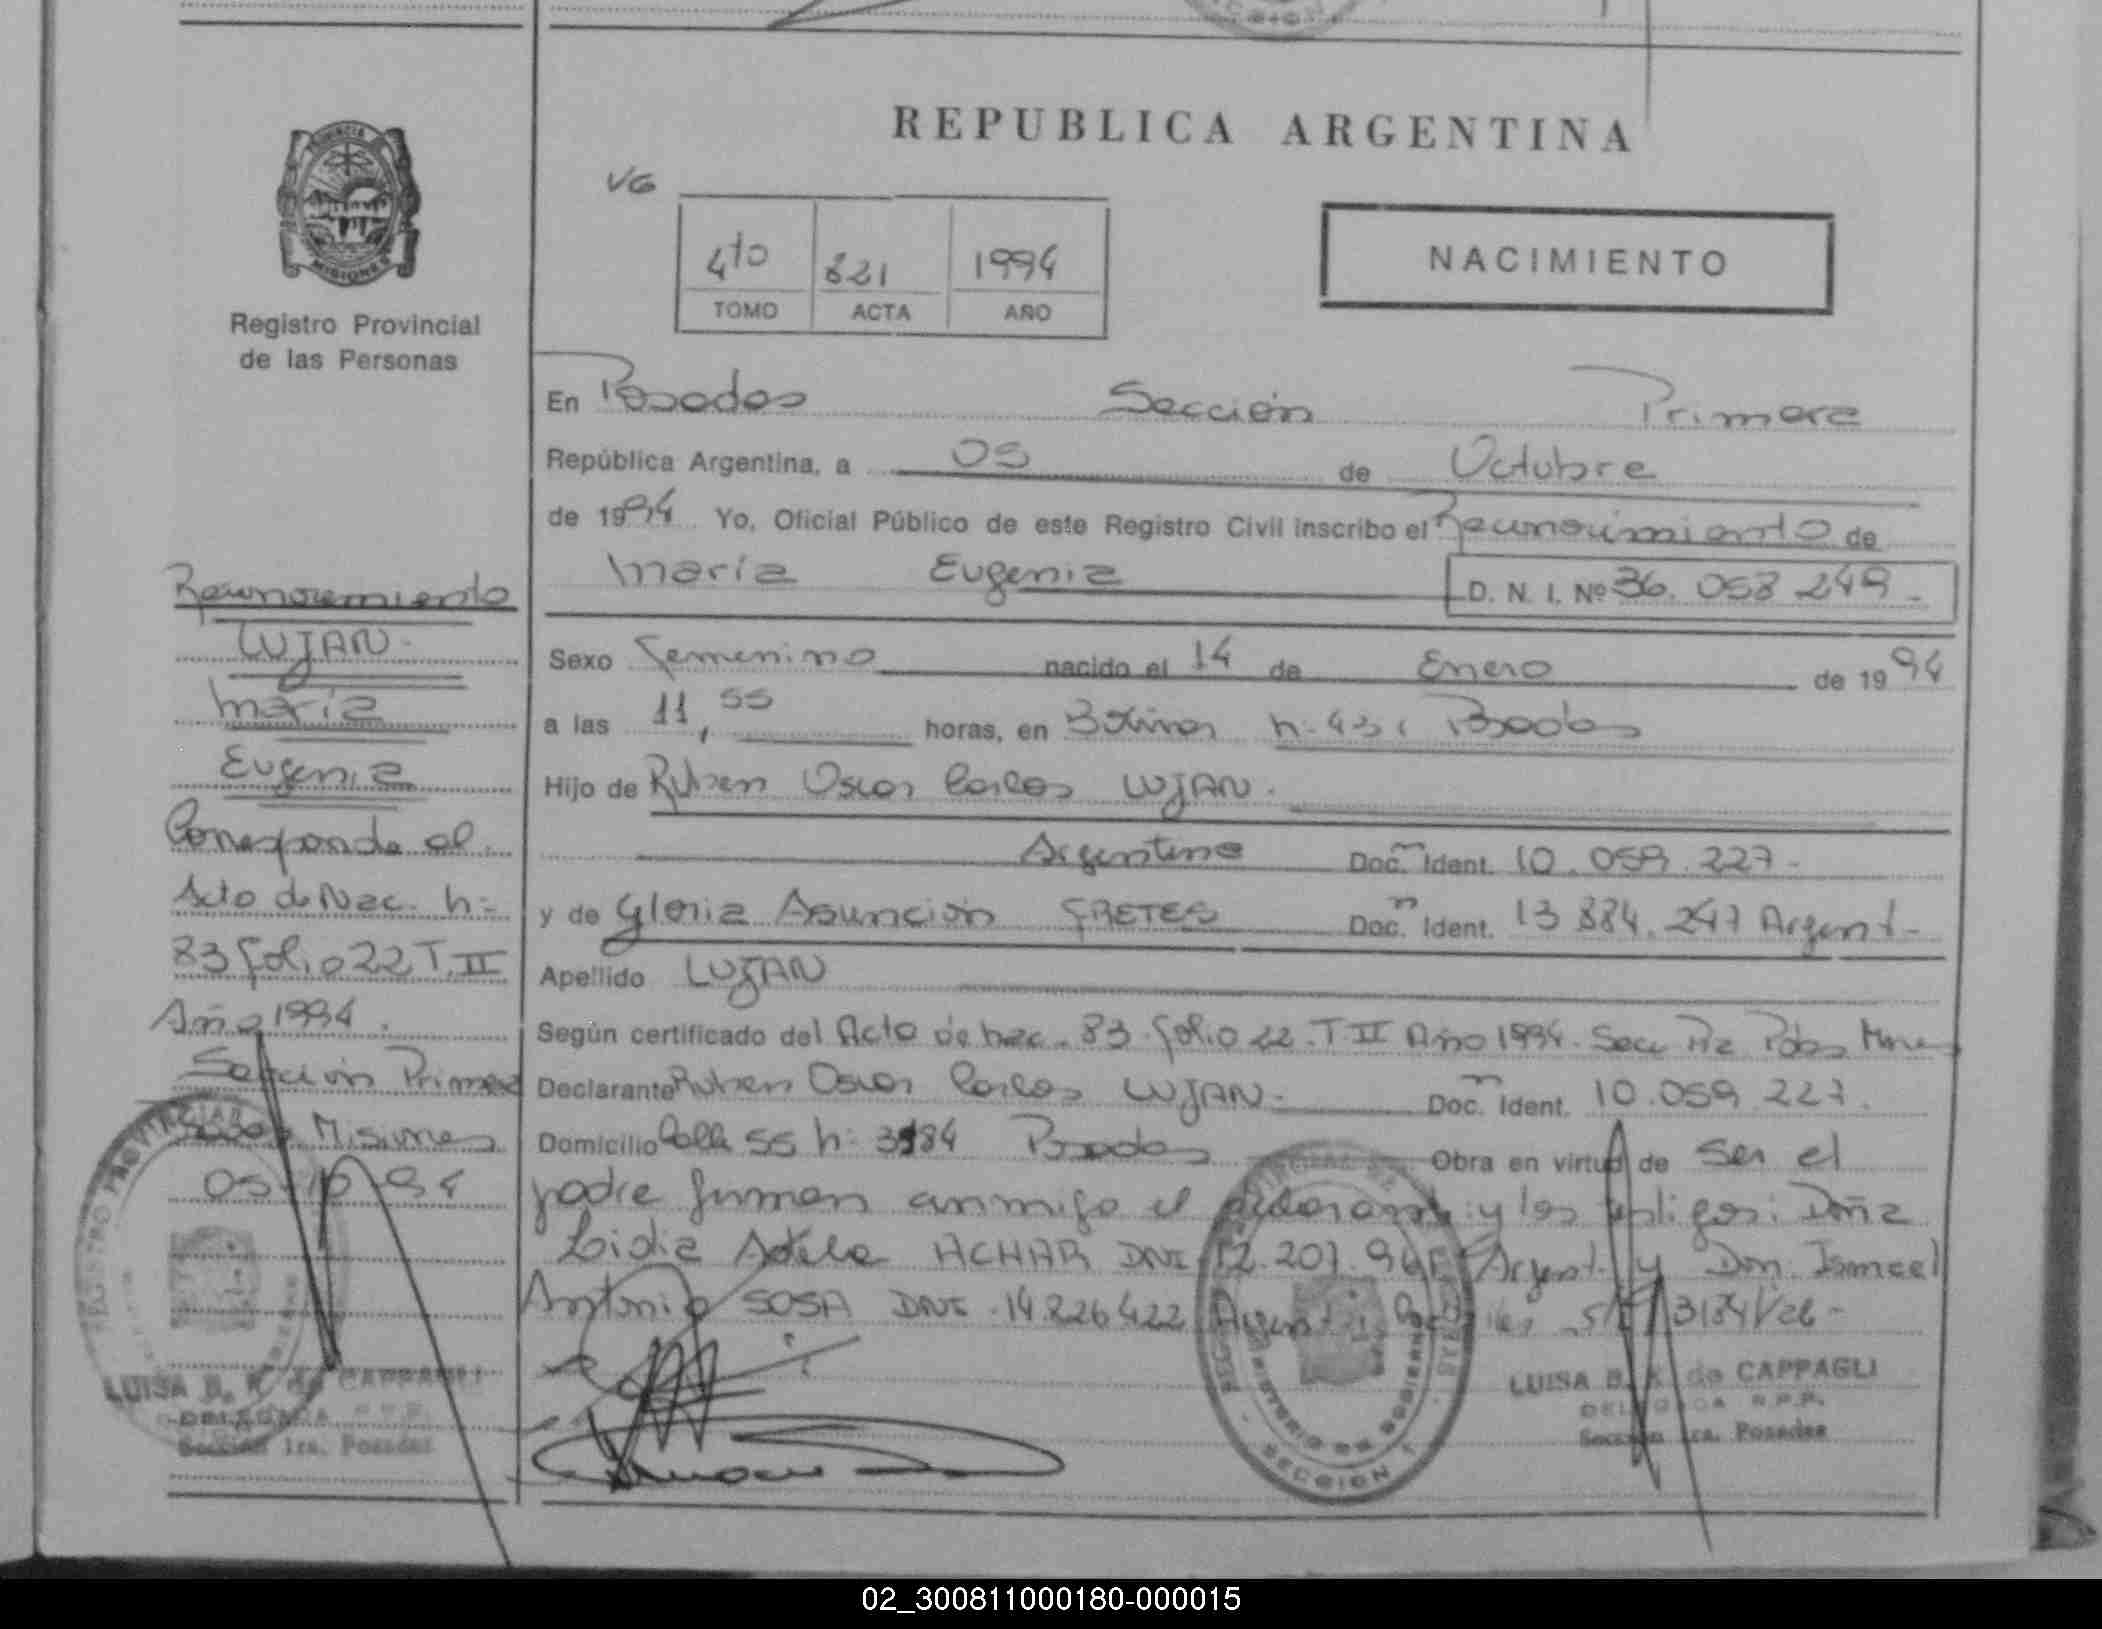 REPUBLICA ARGENTINA
VG
4to 821 1994
TOMO ACTA AÑO
NACIMIENTO
PROVINCIA
MISIONES
Registro Provincial
de las Personas
En Posadas Sección Primera
República Argentina, a 05 de Octubre
de 1994 Yo, Oficial Público de este Registro Civil inscribo el Reconocimiento de
María Eugenia D. N. I. Nº 36.058 249
Sexo Femenino nacido el 14 de Enero de 1994
a las 11,55 horas, en Posadas
Hijo de Ruben Oscar Carlos LUJAN.
Argentino Doc. Ident. 10.059.227
y de Gloria Asunción FRETES Doc. Ident. 13 884.247 Argent.
Apellido LUJAN
Según certificado del Acta de nac. 83 folio 22. T II Año 1994. Secc Pra Pdas Mnes
Declarante Ruben Oscar Carlos LUJAN. Doc. Ident. 10.059.227.
Domicilio Calle 55 n: 3184 Posadas Obra en virtud de ser el
padre firman conmigo el declarante y los testigos: Doña
Lidia Adela ACHAR DNI 12.207. Argent. y Don Ismael
Antonio SOSA DNI 14.826422 Argent.
LUISA B. K. de CAPPAGLI
DELEGADA R.P.P.
Sección 1ra. Posadas
MINISTERIO DE GOBIERNO
SECCION 1
Reconocimiento
LUJAN.
María
Eugenia
Corresponde al
Acta de Nac. n:
83 folio 22 T. II
Año 1994.
Sección Primera
Posadas Misiones
05 10 94
REGISTRO PROVINCIAL
LUISA B. K. de CAPPAGLI
DELEGADA R.P.P.
Sección 1ra. Posadas
02_300811000180-000015